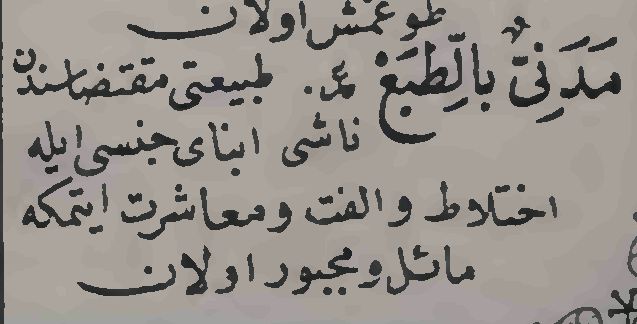 طوغمش اولان
مَدَنِیٌّ بِالطَّبْعِ عد. طبیعتی مقتضاسندن
ناشی ابنای جنسی ایله
اختلاط و الفت و معاشرت ایتمكه
مائل و مجبور اولان